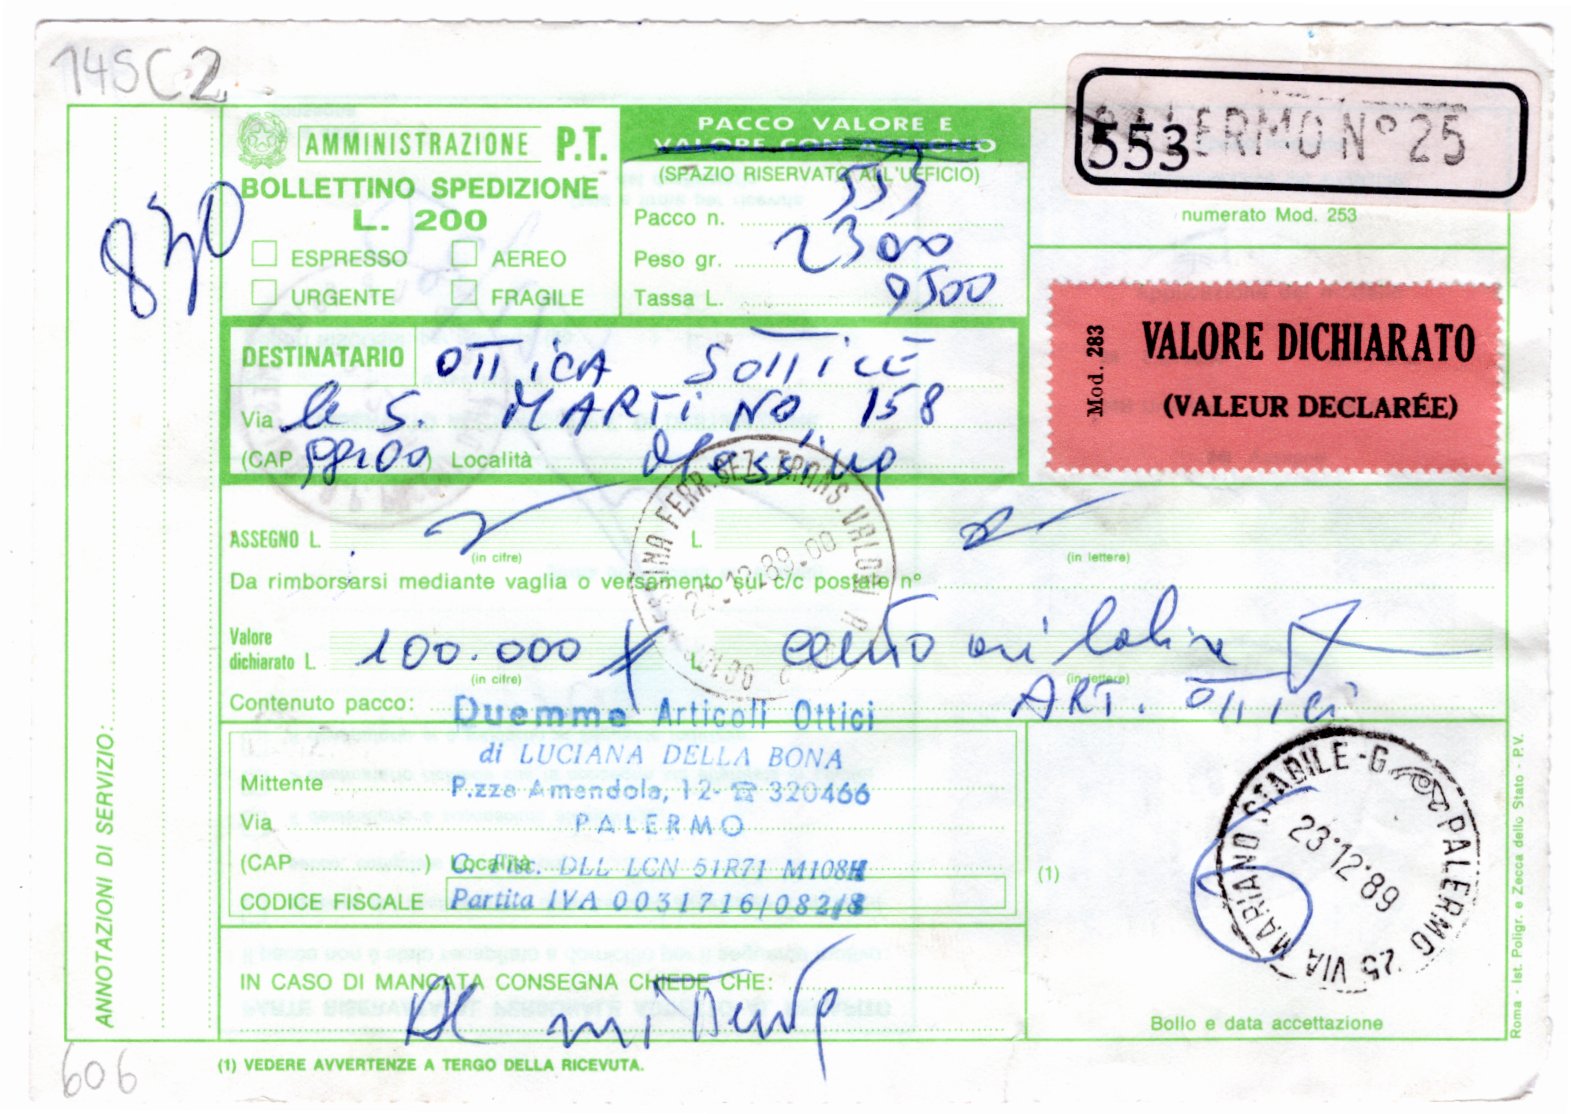 145C2
AMMINISTRAZIONE P.T.
BOLLETTINO SPEDIZIONE
L. 200
ESPRESSO
AEREO
URGENTE
FRAGILE
830
PACCO VALORE E
VALORE CON ASSEGNO
(SPAZIO RISERVATO ALL'UFFICIO)
Pacco n. 553
Peso gr. 2300
Tassa L. 9500
553
PALERMO N° 25
numerato Mod. 253
Mod. 283
VALORE DICHIARATO
(VALEUR DECLARÉE)
DESTINATARIO OTTICA SOTTILE
Via le S. MARTINO 158
(CAP 98100) Località Messina
ASSEGNO L.
(in cifre)
L
(in lettere)
Da rimborsarsi mediante vaglia o versamento sul c/c postale n°
MESSINA FERR. SEZ. TRANS. VALORI
12.89-00
Valore
dichiarato L. 100.000
(in cifre)
L. centomilalire
(in lettere)
Contenuto pacco: ART. OTTICI
Duemme Articoli Ottici
di LUCIANA DELLA BONA
Mittente
P.zza Amendola, 12- ☎ 320466
Via
PALERMO
(CAP ) Località
C. Fisc. DLL LCN 51R71 M108H
CODICE FISCALE
Partita IVA 0031716/082/8
(1)
PALERMO 25 VIA MARIANO STABILE-G
23·12·89
Bollo e data accettazione
IN CASO DI MANCATA CONSEGNA CHIEDE CHE:
Al mittente
ANNOTAZIONI DI SERVIZIO:
Roma - Ist. Poligr. e Zecca dello Stato - P.V.
(1) VEDERE AVVERTENZE A TERGO DELLA RICEVUTA.
606